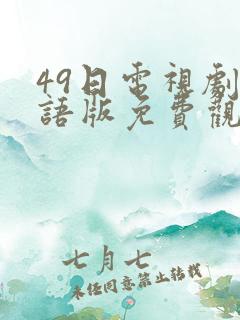 49日電視劇
語版免費觀
七月七
未經同意禁止轉載